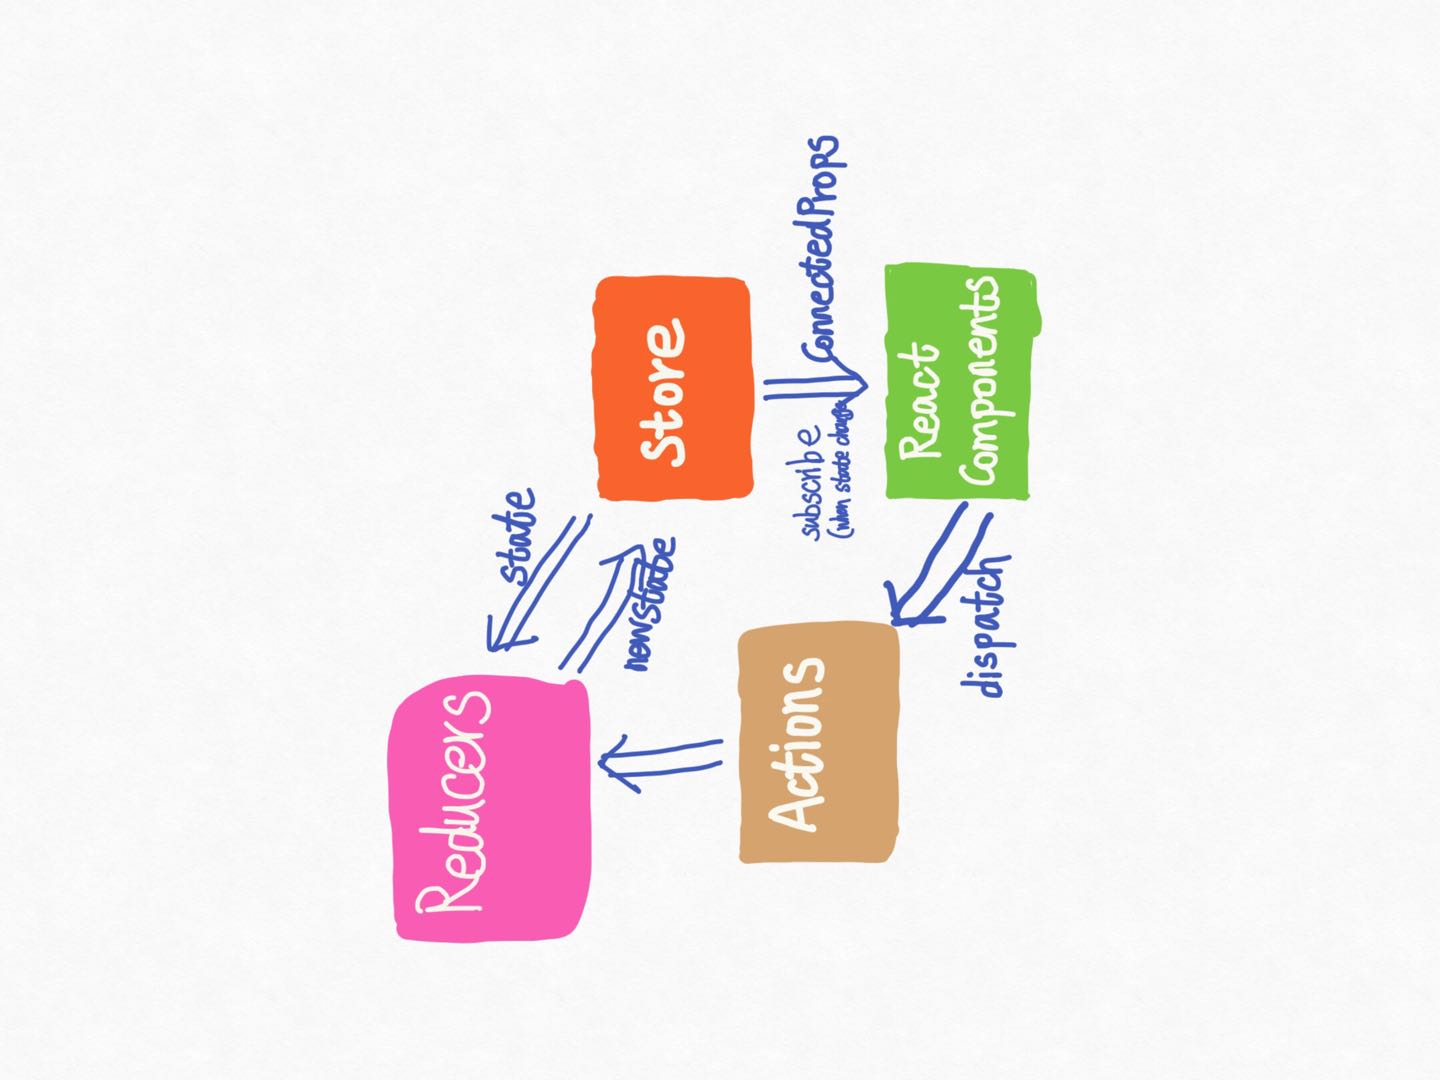 Reducers
state
newstate
Store
Actions
subscribe
(when state change
ConnectedProps
React
Components
dispatch